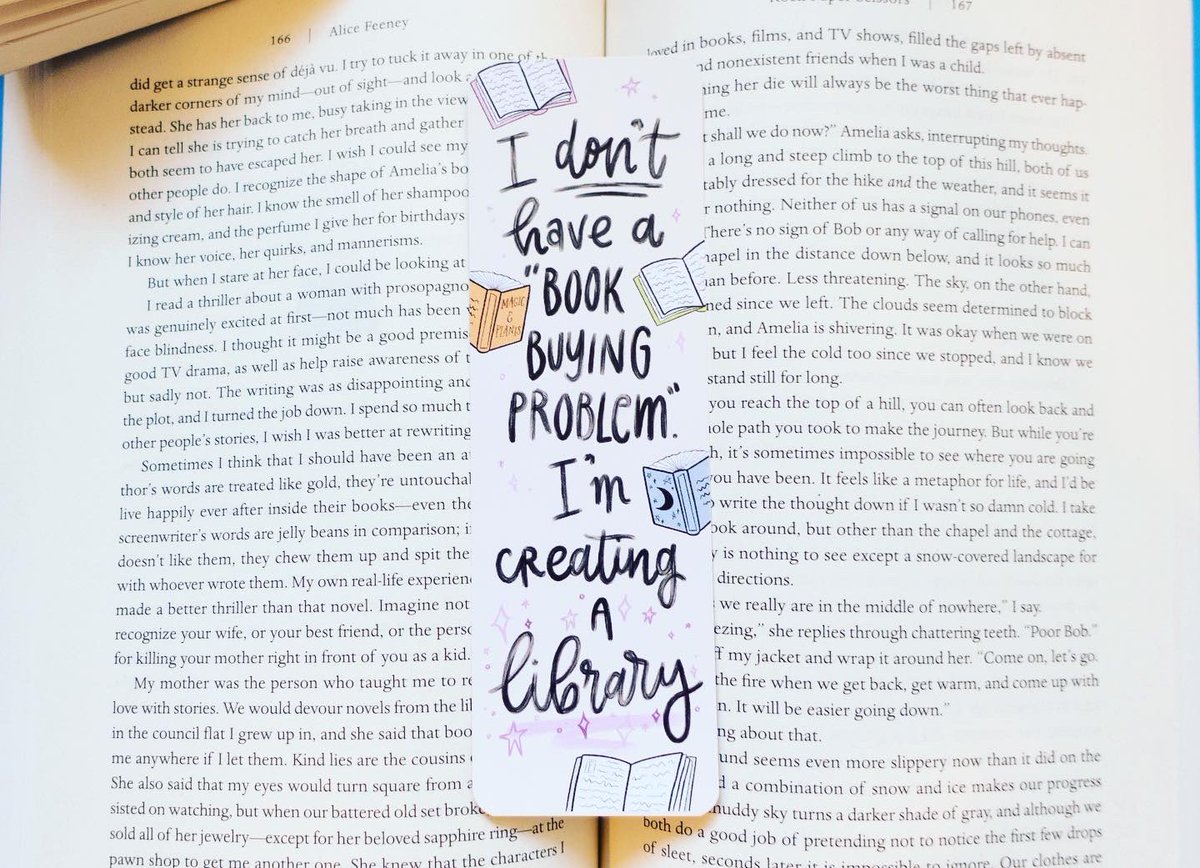 166 | Alice Feeney
did get a strange sense of déjà vu. I try to tuck it away in one of
darker corners of my mind—out of sight—and look
stead. She has her back to me, busy taking in the view
I can tell she is trying to catch her breath and gather
both seem to have escaped her. I wish I could see my
other people do. I recognize the shape of Amelia's
and style of her hair. I know the smell of her shampoo
izing cream, and the perfume I give her for birthdays
I know her voice, her quirks, and mannerisms.
But when I stare at her face, I could be looking at
I read a thriller about a woman with
was genuinely excited at first—not much has been
face blindness. I thought it might be a good
good TV drama, as well as help raise awareness of
but sadly not. The writing was as disappointing
the plot, and I turned the job down. I spend so much
other people's stories, I wish I was better at rewriting
Sometimes I think that I should have been an
thor's words are treated like gold, they're
live happily ever after inside their books—even
screenwriter's words are jelly beans in comparison;
doesn't like them, they chew them up and spit
with whoever wrote them. My own real-life
made a better thriller than that novel. Imagine not
recognize your wife, or your best friend, or the
for killing your mother right in front of you as a kid.
My mother was the person who taught me to
love with stories. We would devour novels from the
in the council flat I grew up in, and she said that
me anywhere if I let them. Kind lies are the cousins
She also said that my eyes would turn square from
sisted on watching, but when our battered old set
sold all of her jewelry—except for her beloved sapphire ring—at the
pawn shop to get me another one. She knew that the characters I
I don't
have a
"BOOK
BUYING
PROBLEM".
I'm
creating
A
library
MAGIC
&
PLANTS
167
loved in books, films, and TV shows, filled the gaps left by absent
nd nonexistent friends when I was a child.
her die will always be the worst thing that ever hap-
me.
shall we do now?" Amelia asks, interrupting my thoughts.
a long and steep climb to the top of this hill, both of us
dressed for the hike and the weather, and it seems it
r nothing. Neither of us has a signal on our phones, even
There's no sign of Bob or any way of calling for help. I can
in the distance down below, and it looks so much
before. Less threatening. The sky, on the other hand,
since we left. The clouds seem determined to block
and Amelia is shivering. It was okay when we were on
but I feel the cold too since we stopped, and I know we
stand still for long.
you reach the top of a hill, you can often look back and
path you took to make the journey. But while you're
it's sometimes impossible to see where you are going
you have been. It feels like a metaphor for life, and I'd be
write the thought down if I wasn't so damn cold. I take
around, but other than the chapel and the cottage,
is nothing to see except a snow-covered landscape for
directions.
we really are in the middle of nowhere," I say.
she replies through chattering teeth. "Poor Bob."
my jacket and wrap it around her. "Come on, let's go.
the fire when we get back, get warm, and come up with
n. It will be easier going down."
about that.
seems even more slippery now than it did on the
a combination of snow and ice makes our progress
sky turns a darker shade of gray, and although we
both do a good job of pretending not to notice the first few drops
of sleet, seconds later it is impossible to ignore. Our clothes are